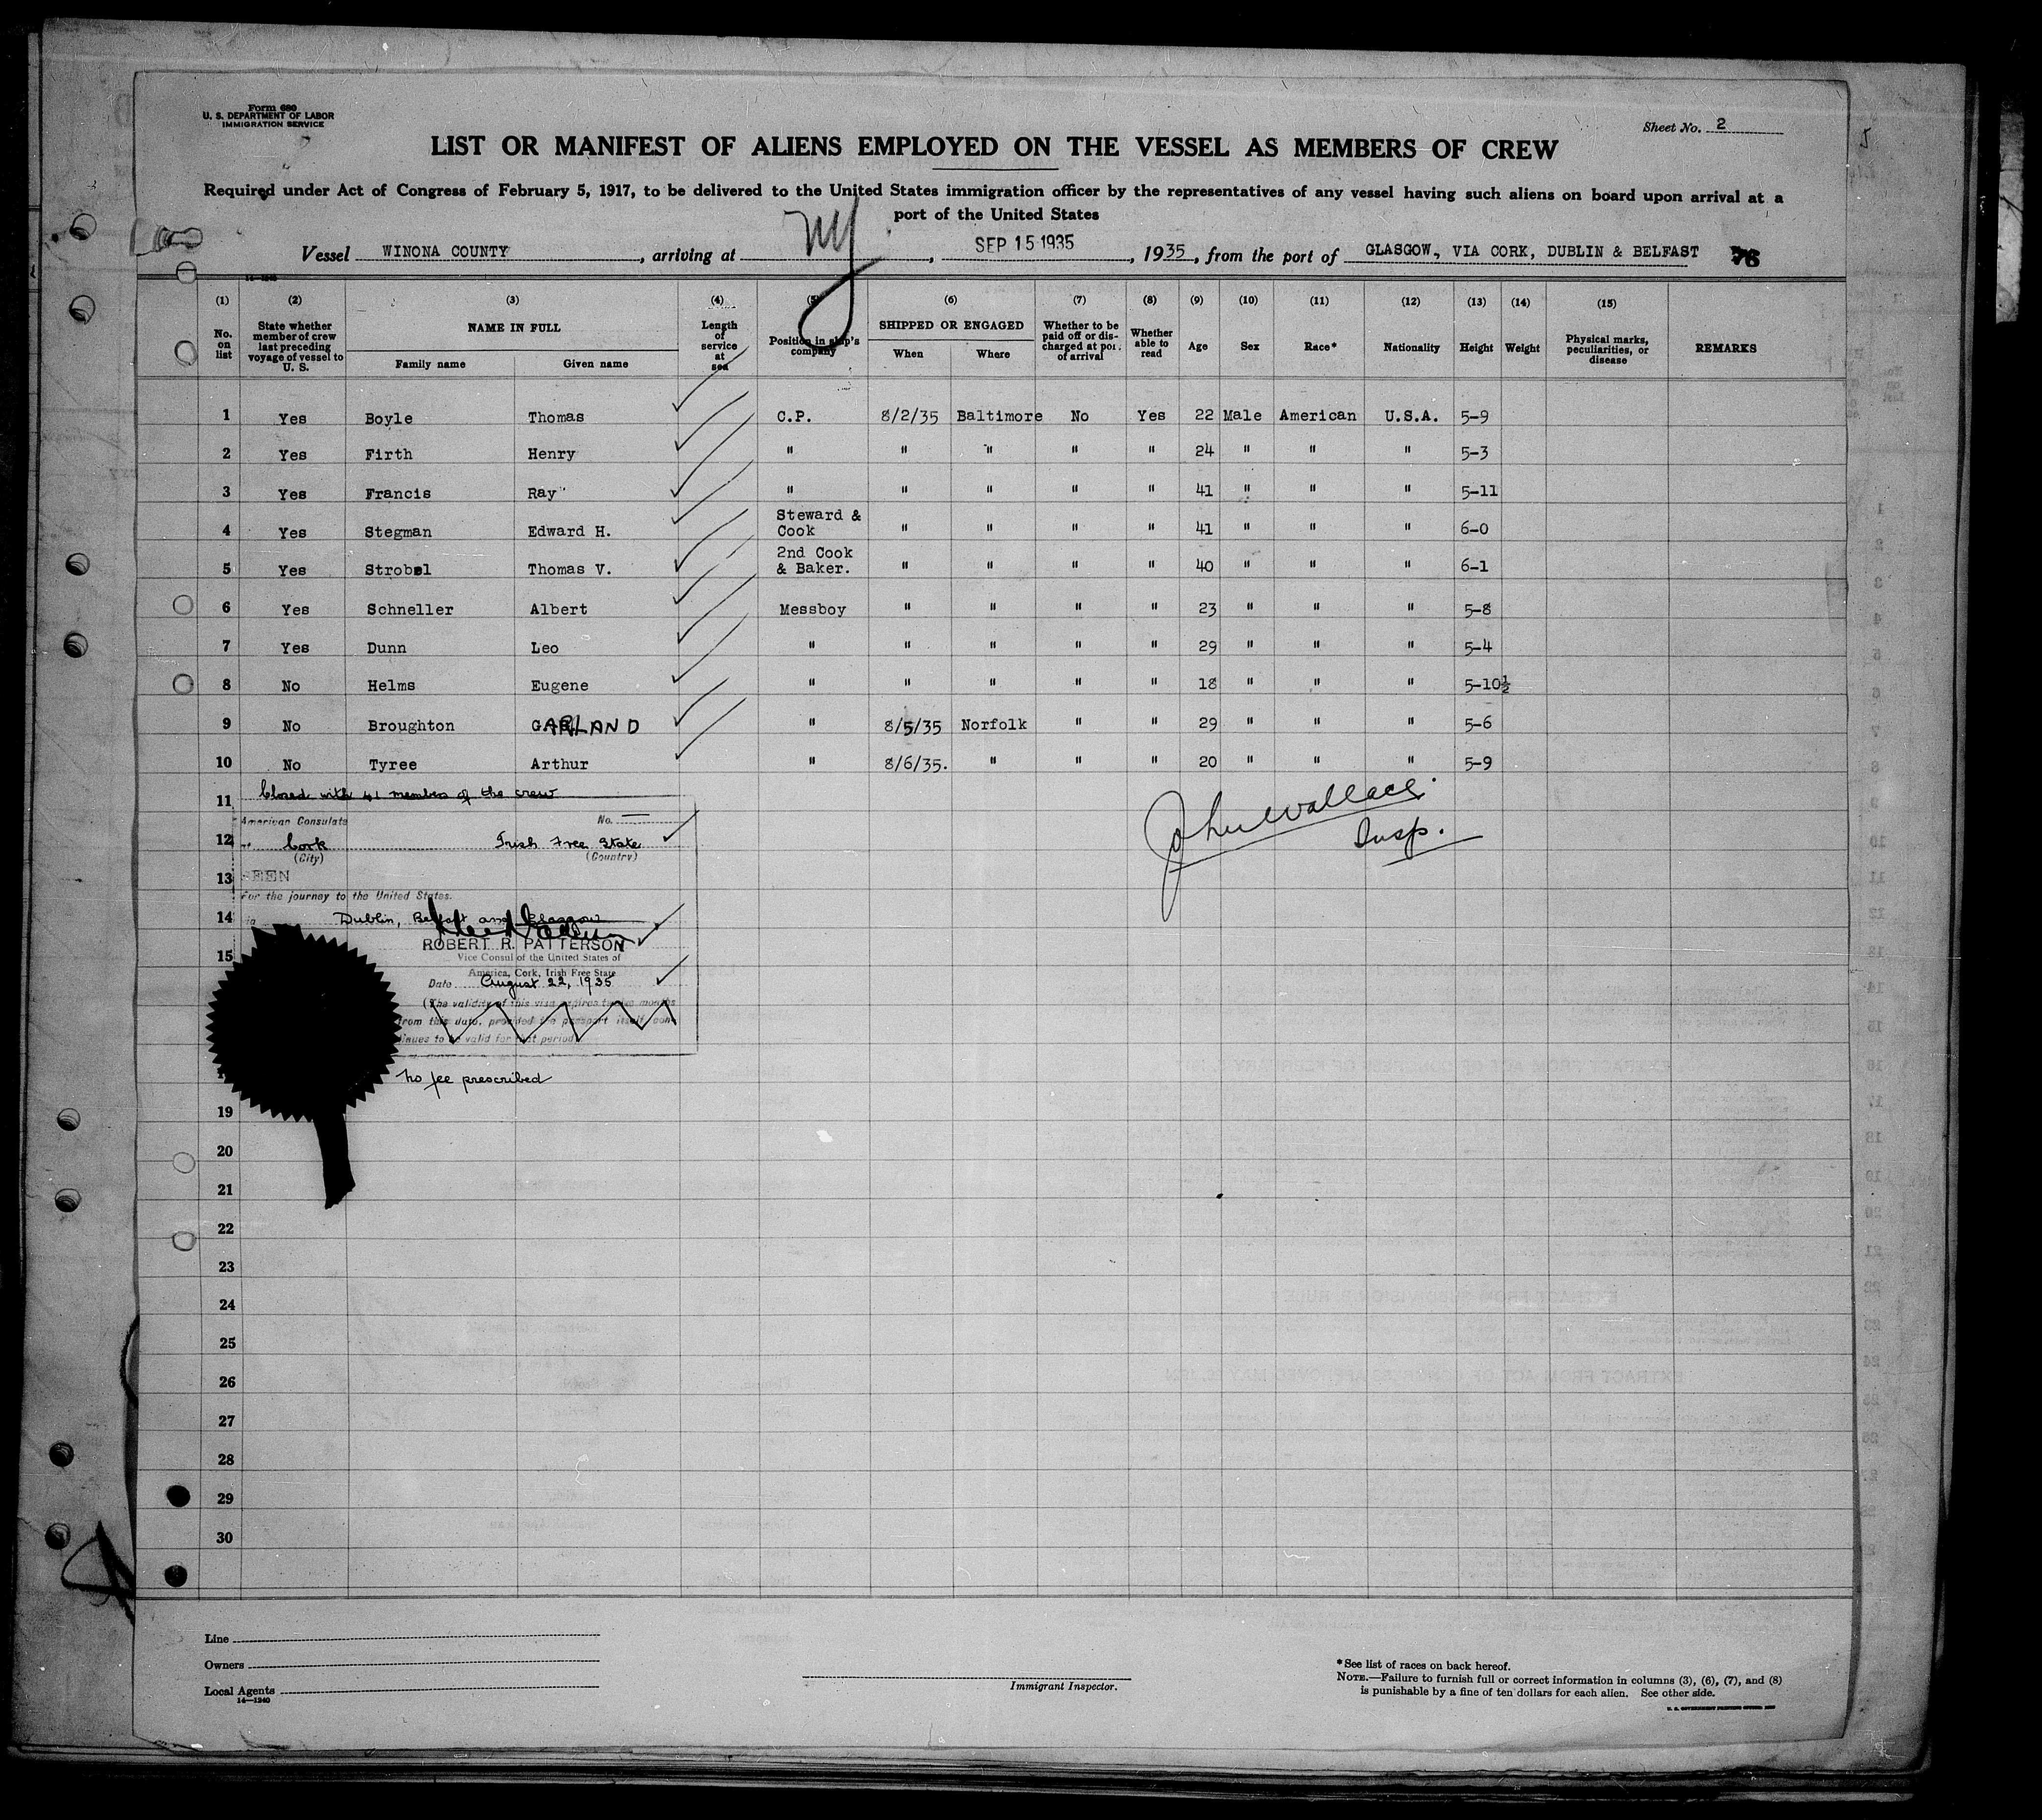 Form 680
U. S. DEPARTMENT OF LABOR
IMMIGRATION SERVICE
Sheet No. 2
LIST OR MANIFEST OF ALIENS EMPLOYED ON THE VESSEL AS MEMBERS OF CREW
Required under Act of Congress of February 5, 1917, to be delivered to the United States immigration officer by the representatives of any vessel having such aliens on board upon arrival at a
port of the United States
Vessel WINONA COUNTY, arriving at NY, SEP 15 1935, 1935, from the port of GLASGOW, VIA CORK, DUBLIN & BELFAST 76
(1) (2) (3) (4) (5) (6) (7) (8) (9) (10) (11) (12) (13) (14) (15)
No. on list
State whether member of crew last preceding voyage of vessel to U. S.
NAME IN FULL
Family name Given name
Length of service at sea
Position in ship's company
SHIPPED OR ENGAGED
When Where
Whether to be paid off or discharged at port of arrival
Whether able to read
Age Sex Race* Nationality Height Weight
Physical marks, peculiarities, or disease
REMARKS
1 Yes Boyle Thomas C.P. 8/2/35 Baltimore No Yes 22 Male American U.S.A. 5-9
2 Yes Firth Henry " " " " " 24 " " " 5-3
3 Yes Francis Ray " " " " " 41 " " " 5-11
4 Yes Stegman Edward H. Steward & Cook " " " " 41 " " " 6-0
5 Yes Strobel Thomas V. 2nd Cook & Baker. " " " " 40 " " " 6-1
6 Yes Schneller Albert Messboy " " " " 23 " " " 5-8
7 Yes Dunn Leo " " " " " 29 " " " 5-4
8 No Helms Eugene " " " " " 18 " " " 5-10½
9 No Broughton GARLAND " 8/5/35 Norfolk " " 29 " " " 5-6
10 No Tyree Arthur " 8/6/35. " " " 20 " " " 5-9
11 Closed with 41 members of the crew
American Consulate No. —
12 Cork Irish Free State
(City) (Country)
13 SEEN
For the journey to the United States.
14 Dublin, Belfast and Glasgow
ROBERT R. PATTERSON
15 Vice Consul of the United States of
America, Cork, Irish Free State
Date August 22, 1935
(The validity of this visa expires twelve months
from this date, provided the passport itself con-
tinues to be valid for that period)
No fee prescribed
John Wallace
Insp.
19
20
21
22
23
24
25
26
27
28
29
30
Line
Owners
Local Agents
14—1240
Immigrant Inspector.
*See list of races on back hereof.
NOTE.—Failure to furnish full or correct information in columns (3), (6), (7), and (8)
is punishable by a fine of ten dollars for each alien. See other side.